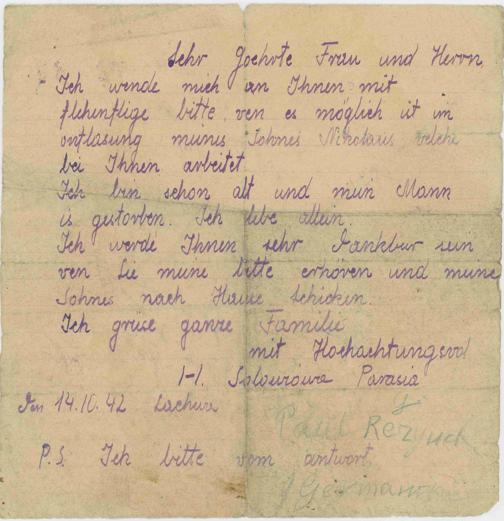 Sehr Geehrte Frau und Herrn
Ich wende mich an Ihnen mit
flehenflige bitte, ven es möglich ist im
entlasung meines Sohnes Nikolaus velche
bei Ihnen arbeitet.
Ich bin schon alt und mein Mann
is gestorben. Ich lebe allein.
Ich werde Ihnen sehr Dankbar sein
ven Sie meine bitte erhören und meine
Sohnes nach Hause schicken.
Ich grüse ganze Familie
mit Hochachtungsvol
Parasia
Den 14.10.42
Paul
P.S. Ich bitte vom antwort
Germany